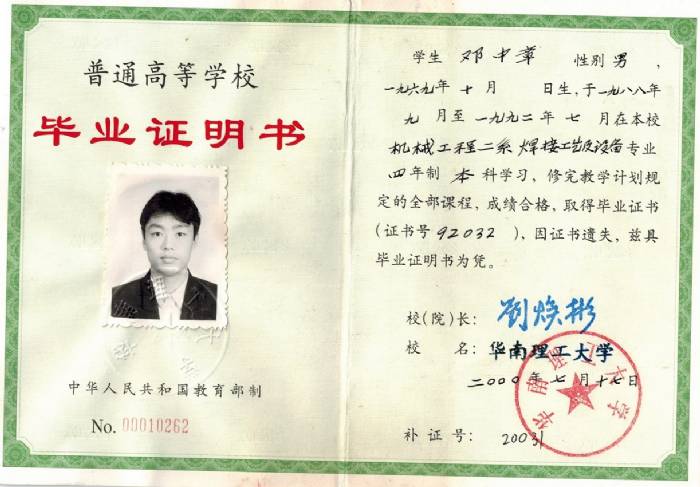 普通高等学校
毕业证明书
中华人民共和国教育部制
No. 00010262
学生 邓中华 性别 男,
一九六九年十月 日生,于一九八八年
九月至一九九二年七月在本校
机械工程二系焊接工艺及设备专业
四年制 本 科学习,修完教学计划规
定的全部课程,成绩合格,取得毕业证书
(证书号 92032 ),因证书遗失,兹具
毕业证明书为凭。
校(院)长: 刘焕彬
校 名: 华南理工大学
二000年七月十七日
华南理工大学
补证号: 20031